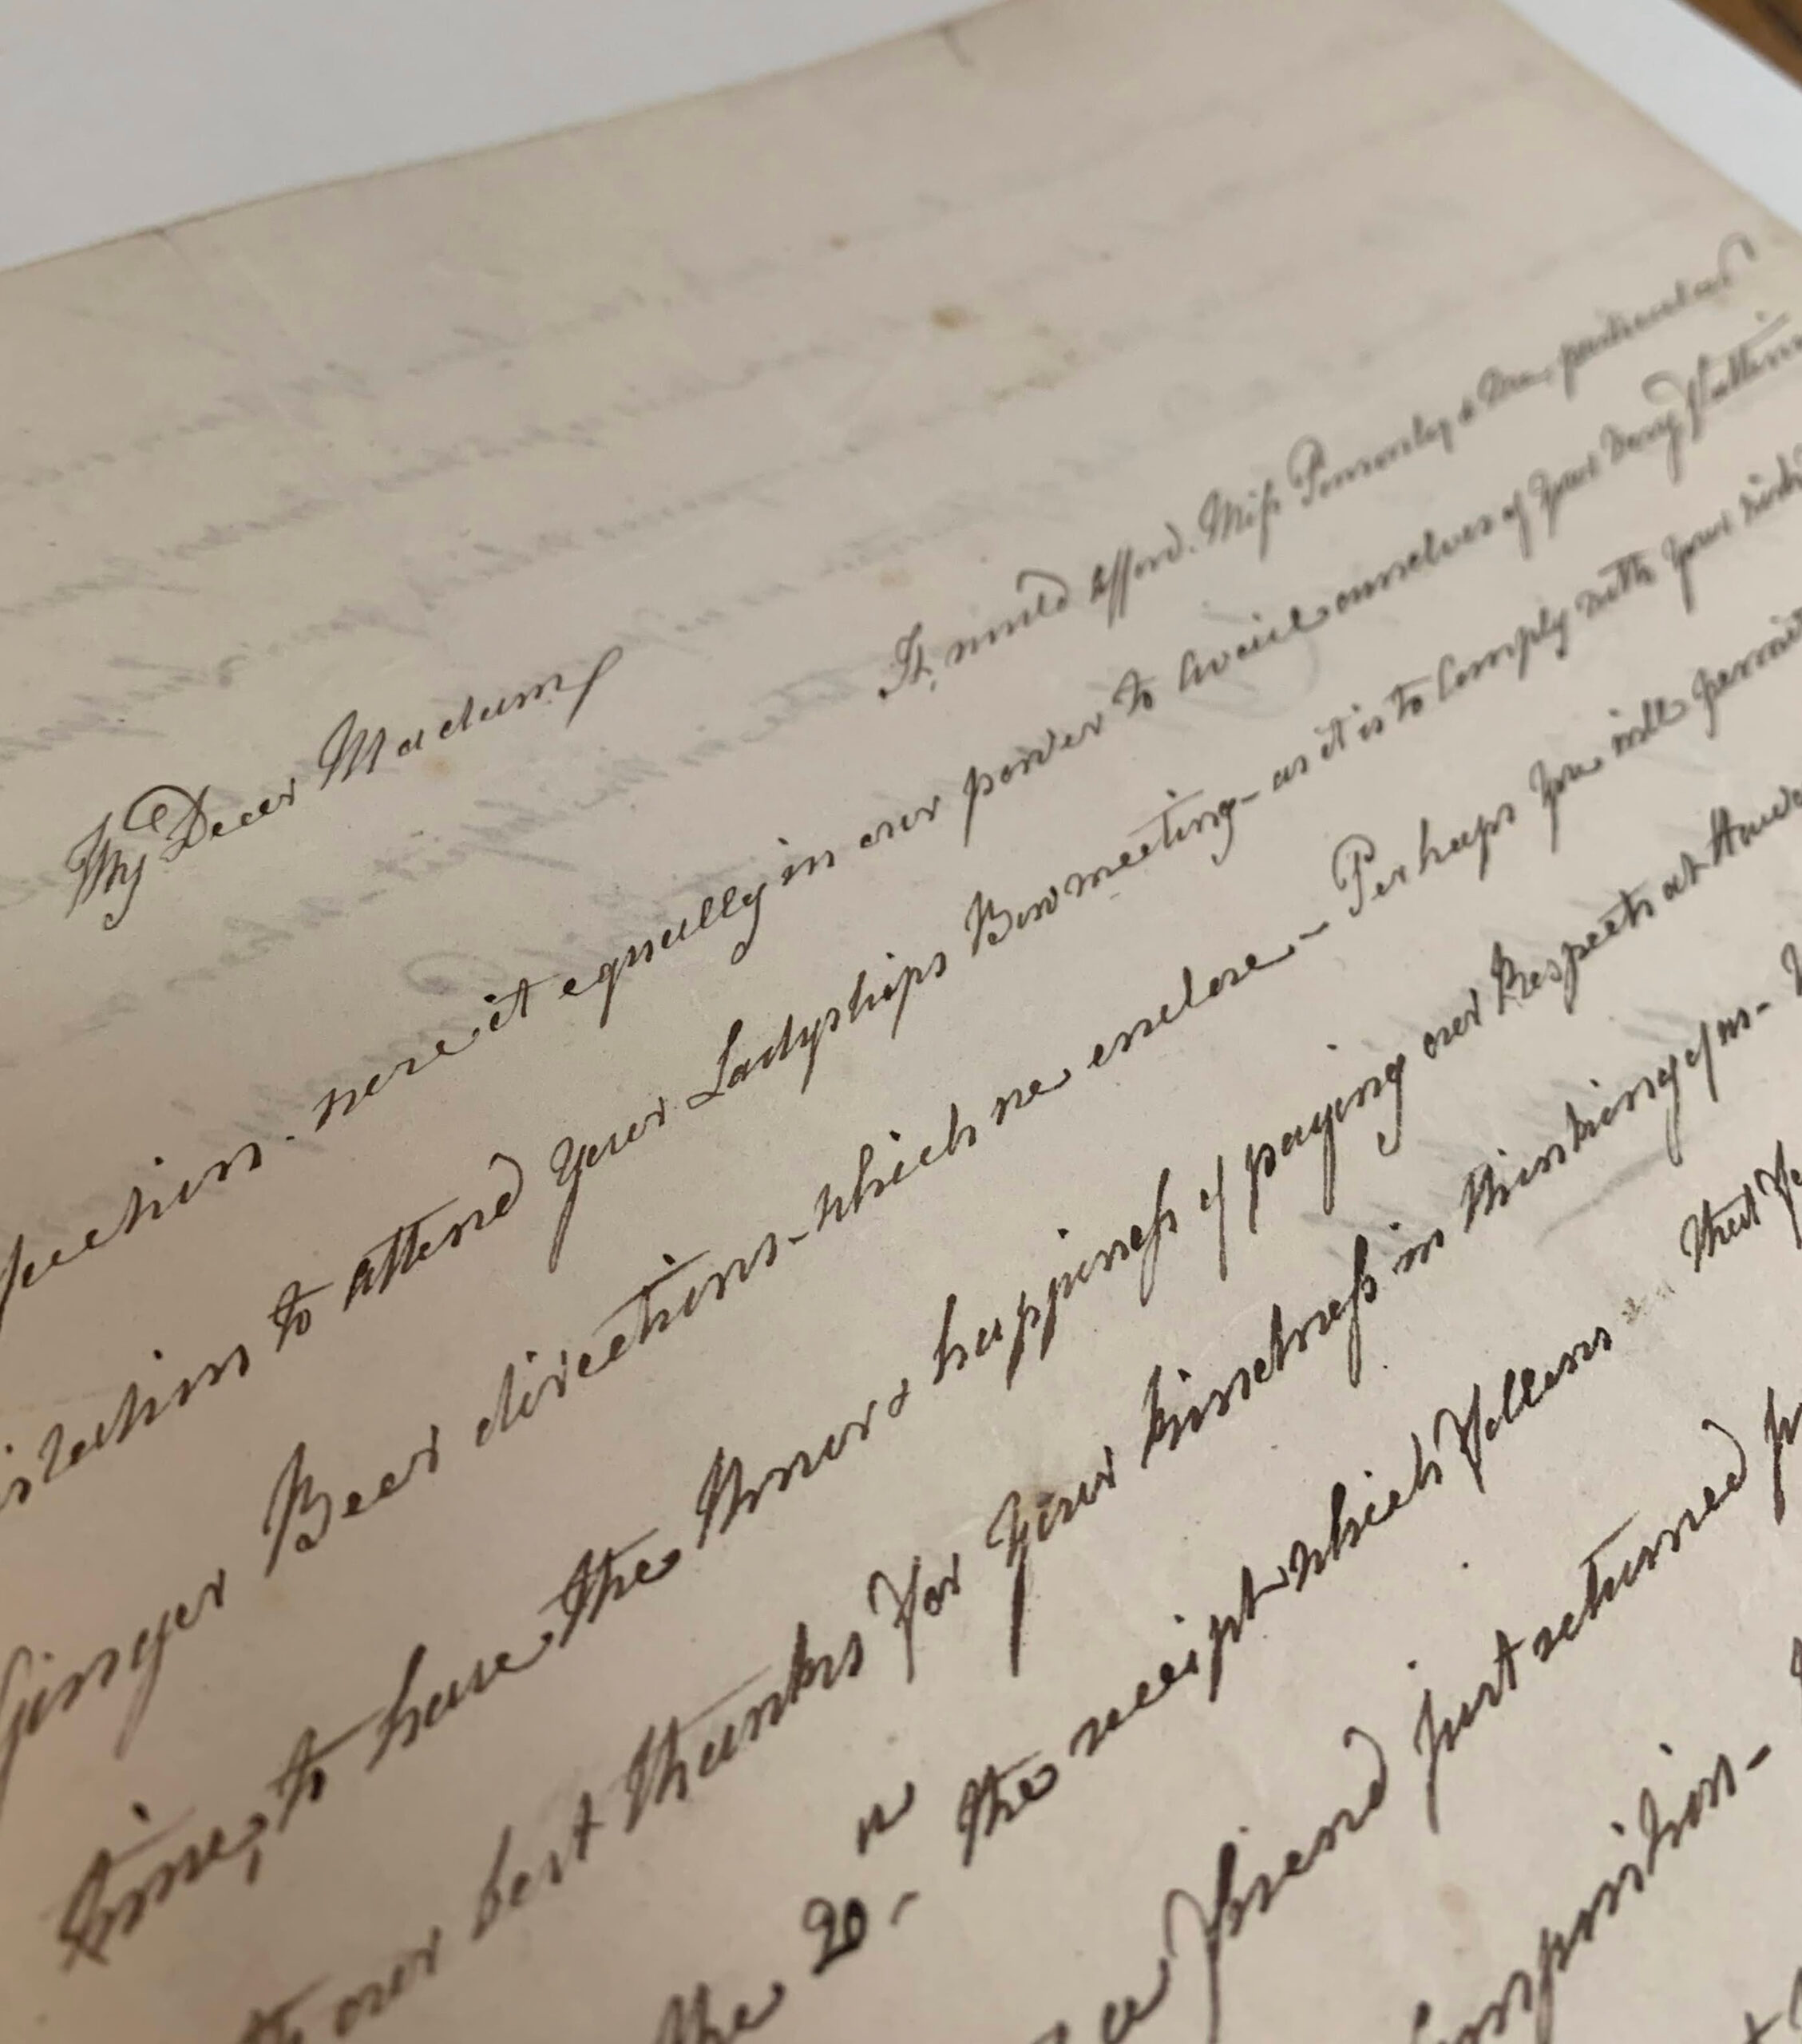 My Dear Madam
It would afford Miss Ponsonby & Me, particular
were it equally in our power to avail ourselves of Your very flattering
to attend Your Ladyships Bow meeting - as it is to Comply with Your
Ginger Beer directions - which we enclose - Perhaps You will permit
time, to have the Honor & happiness of paying our Respects at
our best thanks For Your kindness in thinking of us -
the 20 - the receipt which Follows that
a Friend just returned